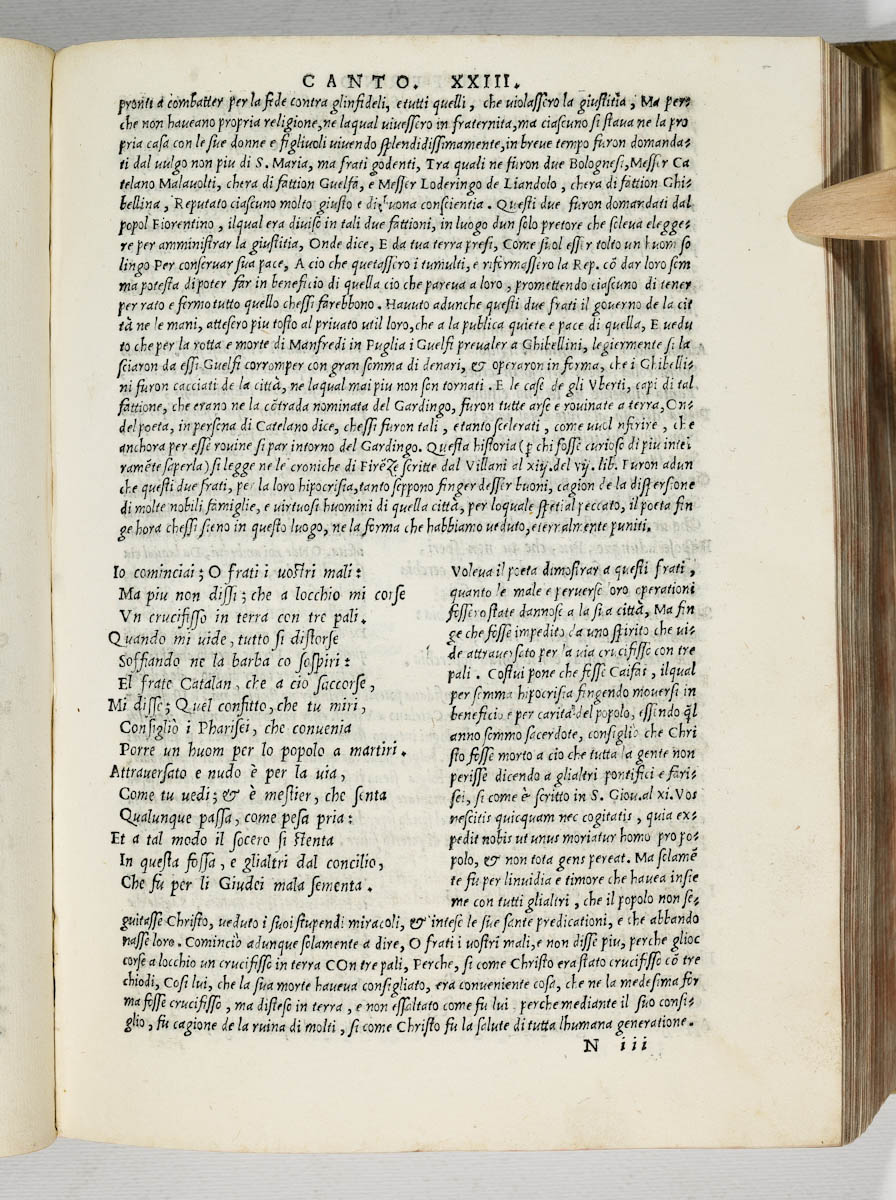 CANTO. XXIII.
pronti a combatter per la fede contra glinfideli, e tutti quelli, che violassero la giustitia, Ma per-
che non haveano propria religione, ne laqual vivessero in fraternita, ma ciascuno si stava ne la pro
pria casa con le sue donne e figlivoli vivendo splendidissimamente, in breve tempo furon domanda-
ti dal vulgo non piu di S. Maria, ma frati godenti, Tra quali ne furon due Bolognesi, Messer Ca
telano Malavolti, chera di fattion Guelfa, e Messer Loderingo de Liandolo, chera di fattion Ghi-
bellina, Reputato ciascuno molto giusto e di buona conscientia. Questi due furon domandati dal
popol Fiorentino, ilqual era diviso in tali due fattioni, in luogo dun solo pretore che soleva elegge-
re per amministrar la giustitia, Onde dice, E da tua terra presi, Come suol esser tolto un huom so
lingo Per conservar sua pace, A cio che quetassero i tumulti, e riformassero la Rep. cō dar loro som
ma potesta di poter far in beneficio di quella cio che pareva a loro, promettendo ciascuno di tener
per rato e fermo tutto quello chessi farebbono. Havuto adunche questi due frati il governo de la cit
tà ne le mani, attesero piu tosto al privato util loro, che a la publica quiete e pace di quella, E vedu
to che per la rotta e morte di Manfredi in Puglia i Guelfi prevaler a Ghibellini, legiermente si la
sciaron da essi Guelfi corromper con gran somma di denari, & operaron in forma, che i Ghibelli-
ni furon cacciati de la città, ne laqual mai piu non son tornati. E le case de gli Vberti, capi di tal
fattione, che erano ne la cōtrada nominata del Gardingo, furon tutte arse e rovinate a terra, On-
de l poeta, in persona di Catelano dice, chessi furon tali, e tanto scelerati, come vuol riferire, che
anchora per esse rovine si par intorno del Gardingo. Questa historia (p chi fosse curioso di piu intei
ramēte saperla) si legge ne le croniche di Firēze scritte dal Villani al xiij. del vij. lib. Furon adun
che questi due frati, per la loro hipocrisia, tanto seppono finger desser buoni, cagion de la dispersione
di molte nobili famiglie, e virtuosi huomini di quella città, per loquale spetial peccato, il poeta fin
ge hora chessi sieno in questo luogo, ne la forma che habbiamo veduto, eternalmente puniti.
Io cominciai; O frati i vostri mali:
Ma piu non dissi; che a locchio mi corse
Vn crucifisso in terra con tre pali.
Quando mi vide, tutto si distorse
Soffiando ne la barba co sospiri:
El frate Catalan, che a cio saccorse,
Mi disse; Quel confitto, che tu miri,
Consigliò i Pharisei, che convenia
Porre un huom per lo popolo a martiri.
Attraversato e nudo è per la via,
Come tu vedi; & è mestier, che senta
Qualunque passa, come pesa pria:
Et a tal modo il socero si stenta
In questa fossa, e glialtri dal concilio,
Che fu per li Giudei mala sementa.
Voleva il poeta dimostrar a questi frati,
quanto le male e perverse loro operationi
fossero state dannose a la sua città, Ma fin
ge che fosse impedito da uno spirito che vi-
de attraversato per la via crucifisso con tre
pali. Costui pone che fosse Caifas, ilqual
per somma hipocrisia fingendo moversi in
beneficio e per carità del popolo, essendo q̄l
anno sommo sacerdote, consigliò che Chri
sto fosse morto a cio che tutta la gente non
perisse dicendo a glialtri pontifici e fari-
sei, si come è scritto in S. Giov. al xi. Vos
nescitis quicquam nec cogitatis, quia ex-
pedit nobis ut unus moriatur homo pro po-
polo, & non tota gens pereat. Ma solamē
te fu per linvidia e timore che havea insie
me con tutti glialtri, che il popolo non se-
guitasse Christo, veduto i suoi stupendi miracoli, & intese le sue sante predicationi, e che abbando
nasse loro. Cominciò adunque solamente a dire, O frati i vostri mali, e non disse piu, perche glioc
corse a locchio un crucifisso in terra COn tre pali, Perche, si come Christo era stato crucifisso cō tre
chiodi, Cosi lui, che la sua morte haveva consigliato, era conveniente cosa, che ne la medesima for
ma fosse crucifisso, ma disteso in terra, e non essaltato come fu lui perche mediante il suo consi-
glio, fu cagione de la ruina di molti, si come Christo fu la salute di tutta l'humana generatione.
N iii